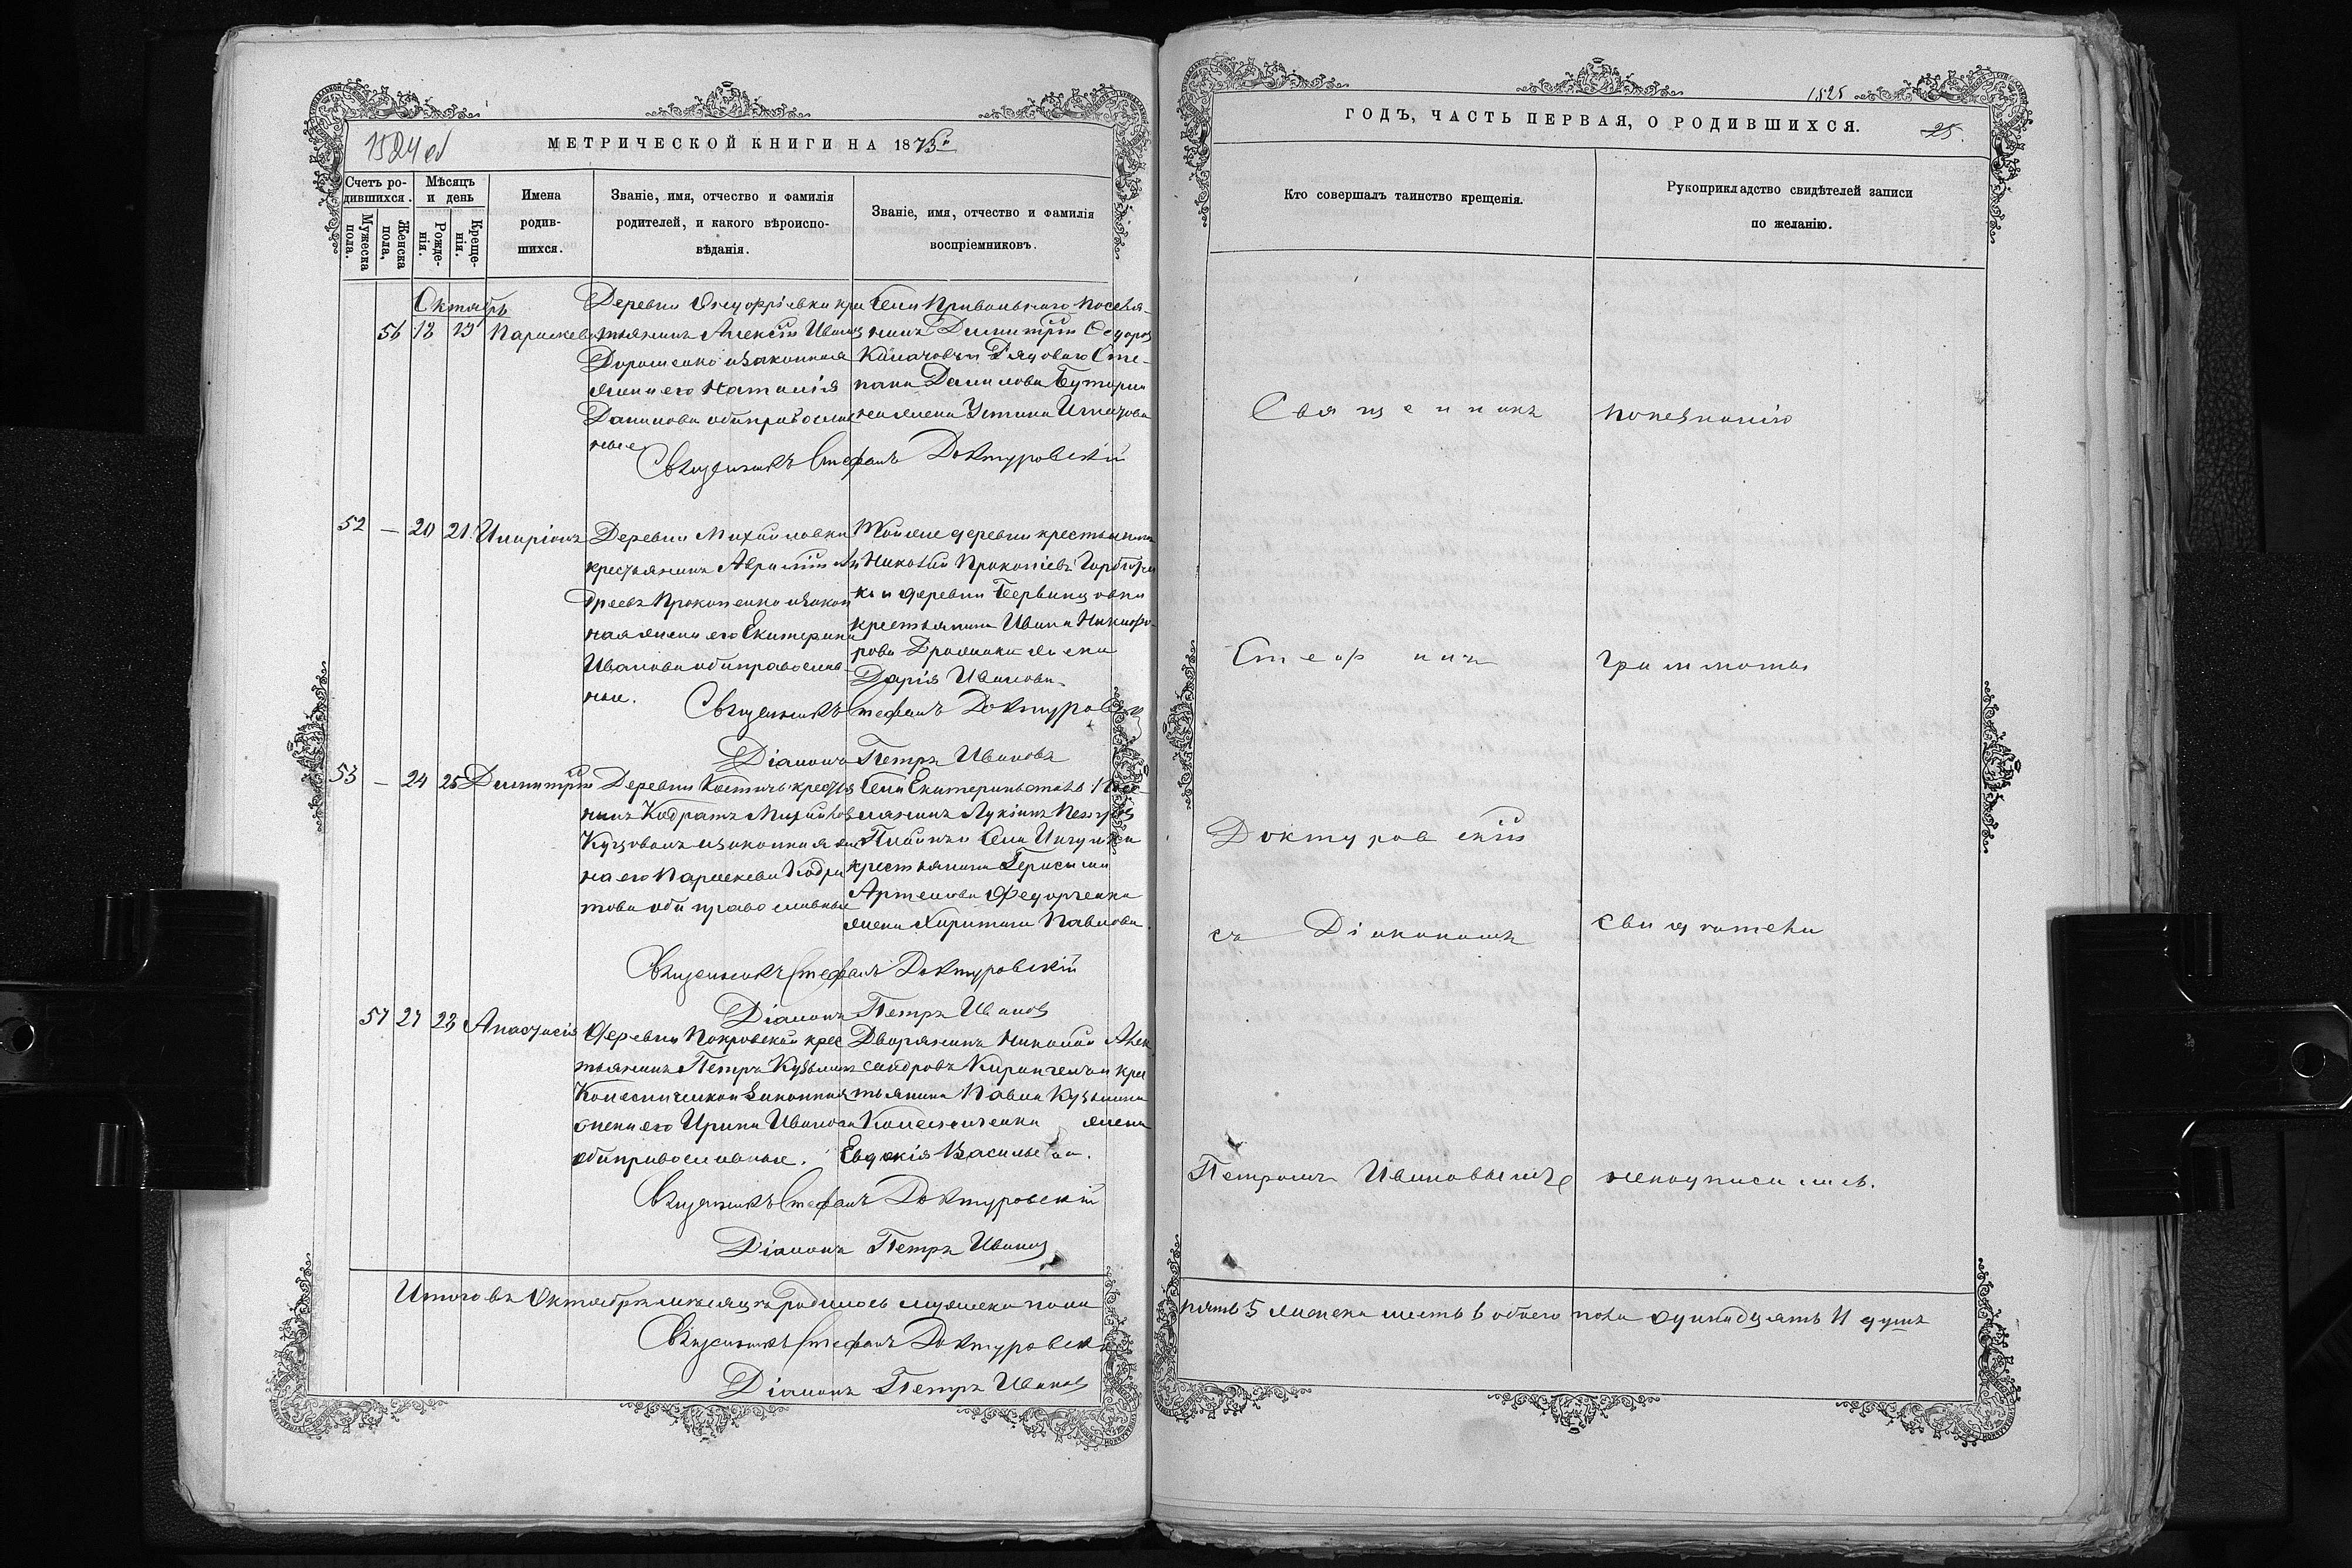 1524 об
МЕТРИЧЕСКОЙ КНИГИ НА 1873й
Счетъ ро-
дившихся.
Мѣсяцъ
и день
Мужеска
пола.
Женска
пола,
Рожде-
нія.
Креще-
нія.
Имена
родив-
шихся.
Званіе, имя, отчество и фамилія
родителей, и какого вѣроиспо-
вѣданія.
Званіе, имя, отчество и фамилія
воспріемниковъ.
Октябрь
56 12 13 Параскева
Деревни Онуфріевки кре
стьянинъ Алексій Иванъ
Дорошенко и законная
жена его Наталія
Данилова оба православ
ные
Села Привольнаго поселя-
нинъ Димитрій Федоровъ
Рядоваго Сте-
пана Данилова Бутора
жена
Священникъ Стефанъ Доктуровскій
52 — 20 21 Иларіонъ
Деревни Михайловки
крестьянинъ Ан
дреевъ Прокопенко и закон
ная жена его Екатерина
Иванова оба православ-
ные.
Той же деревни крестьянинъ
Николай Прокопіевъ
ко и деревни
крестьянина Ивана Никифо-
рова жена
Дарія Иванова
Священникъ Стефанъ Доктуровскій
Діаконъ Петръ Ивановъ
53 — 24 25 Димитрій
Деревни Костычъ крестья
нинъ Кодратъ Михайловъ
и законная же
на его Параскева Кодра
това оба православные
Села Екатериновки
Села Ингулки
крестьянина Герасима
Артемова Федорченка
жена Харитина Павлова.
Священникъ Стефанъ Доктуровскій
Діаконъ Петръ Ивановъ
57 27 28 Анастасія
Деревни Покровской крес
тьянинъ Петръ Кузьминъ
Колесниченко и законная
жена его Ирина Иванова
оба православные.
Дворянинъ Николай Алек
сандровъ и крес
тьянина Павла Кузьмина
Колесниченка жена
Евдокія Васильева.
Священникъ Стефанъ Доктуровскій
Діаконъ Петръ Ивановъ
Итого въ Октябрѣ мѣсяцѣ родилось мужеска пола
Священникъ Стефанъ Доктуровскій
Діаконъ Петръ Ивановъ
1525
ГОДЪ, ЧАСТЬ ПЕРВАЯ, О РОДИВШИХСЯ.
25.
Кто совершалъ таинство крещенія.
Рукоприкладство свидѣтелей записи
по желанію.
Священникъ
по незнанію
Стефанъ
грамматы
Доктуровскій
съ Діакономъ
свидѣтели
Петромъ Ивановымъ
неподписались.
пять 5 женска шесть 6 обоего пола одинадцать 11 душъ